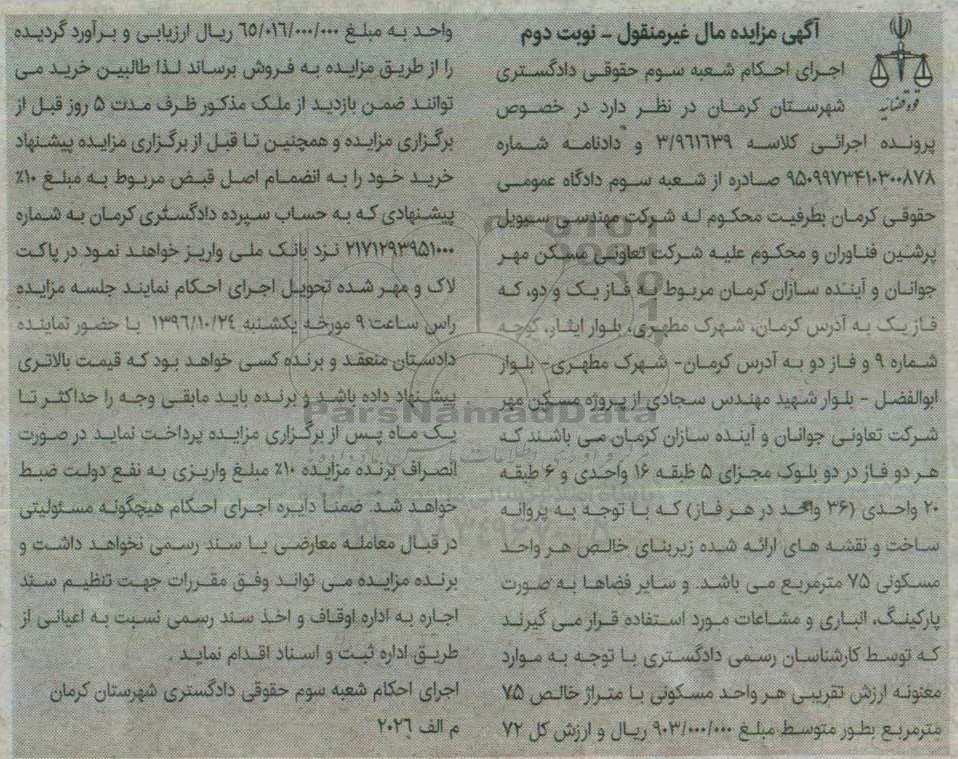 آگهی مزایده مال غیرمنقول - نوبت دوم
اجرای احکام شعبه سوم حقوقی دادگستری
شهرستان کرمان در نظر دارد در خصوص
پرونده اجرائی کلاسه ۳/۹۶۱۶۳۹ و دادنامه شماره
۹۵۰۹۹۷۳۴۱۰۳۰۰۸۷۸ صادره از شعبه سوم دادگاه عمومی
حقوقی کرمان بطرفیت محکوم له شرکت مهندسی سیویل
پرشین فناوران و محکوم علیه شرکت تعاونی مسکن مهر
جوانان و آینده سازان کرمان مربوط به فاز یک و دو، که
فاز یک به آدرس کرمان، شهرک مطهری، بلوار ایثار، کوچه
شماره ۹ و فاز دو به آدرس کرمان- شهرک مطهری- بلوار
ابوالفضل - بلوار شهید مهندس سجادی از پروژه مسکن مهر
شرکت تعاونی جوانان و آینده سازان کرمان می باشند که
هر دو فاز در دو بلوک مجزای ۵ طبقه ۱۶ واحدی و ۶ طبقه
۲۰ واحدی (۳۶ واحد در هر فاز) که با توجه به پروانه
ساخت و نقشه های ارائه شده زیربنای خالص هر واحد
مسکونی ۷۵ مترمربع می باشد. و سایر فضاها به صورت
پارکینگ، انباری و مشاعات مورد استفاده قرار می گیرند
که توسط کارشناسان رسمی دادگستری با توجه به موارد
معنونه ارزش تقریبی هر واحد مسکونی با متراژ خالص ۷۵
مترمربع بطور متوسط مبلغ ۹۰۳/۰۰۰/۰۰۰ ریال و ارزش کل ۷۲
واحد به مبلغ ۶۵/۰۱۶/۰۰۰/۰۰۰ ریال ارزیابی و برآورد گردیده
را از طریق مزایده به فروش برساند لذا طالبین خرید می
توانند ضمن بازدید از ملک مذکور ظرف مدت ۵ روز قبل از
برگزاری مزایده و همچنین تا قبل از برگزاری مزایده پیشنهاد
خرید خود را به انضمام اصل قبض مربوط به مبلغ ۱۰٪
پیشنهادی که به حساب سپرده دادگستری کرمان به شماره
۲۱۷۱۲۹۳۹۵۱۰۰۰ نزد بانک ملی واریز خواهند نمود در پاکت
لاک و مهر شده تحویل اجرای احکام نمایند جلسه مزایده
راس ساعت ۹ مورخه یکشنبه ۱۳۹۶/۱۰/۲۴ با حضور نماینده
دادستان منعقد و برنده کسی خواهد بود که قیمت بالاتری
پیشنهاد داده باشد و برنده باید مابقی وجه را حداکثر تا
یک ماه پس از برگزاری مزایده پرداخت نماید در صورت
انصراف برنده مزایده ۱۰٪ مبلغ واریزی به نفع دولت ضبط
خواهد شد. ضمنا دایره اجرای احکام هیچگونه مسئولیتی
در قبال معامله معارضی یا سند رسمی نخواهد داشت و
برنده مزایده می تواند وفق مقررات جهت تنظیم سند
اجاره به اداره اوقاف و اخذ سند رسمی نسبت به اعیانی از
طریق اداره ثبت و اسناد اقدام نماید .
اجرای احکام شعبه سوم حقوقی دادگستری شهرستان کرمان
م الف ۲۰۲۶
قوه قضائیه
ParsNamadData